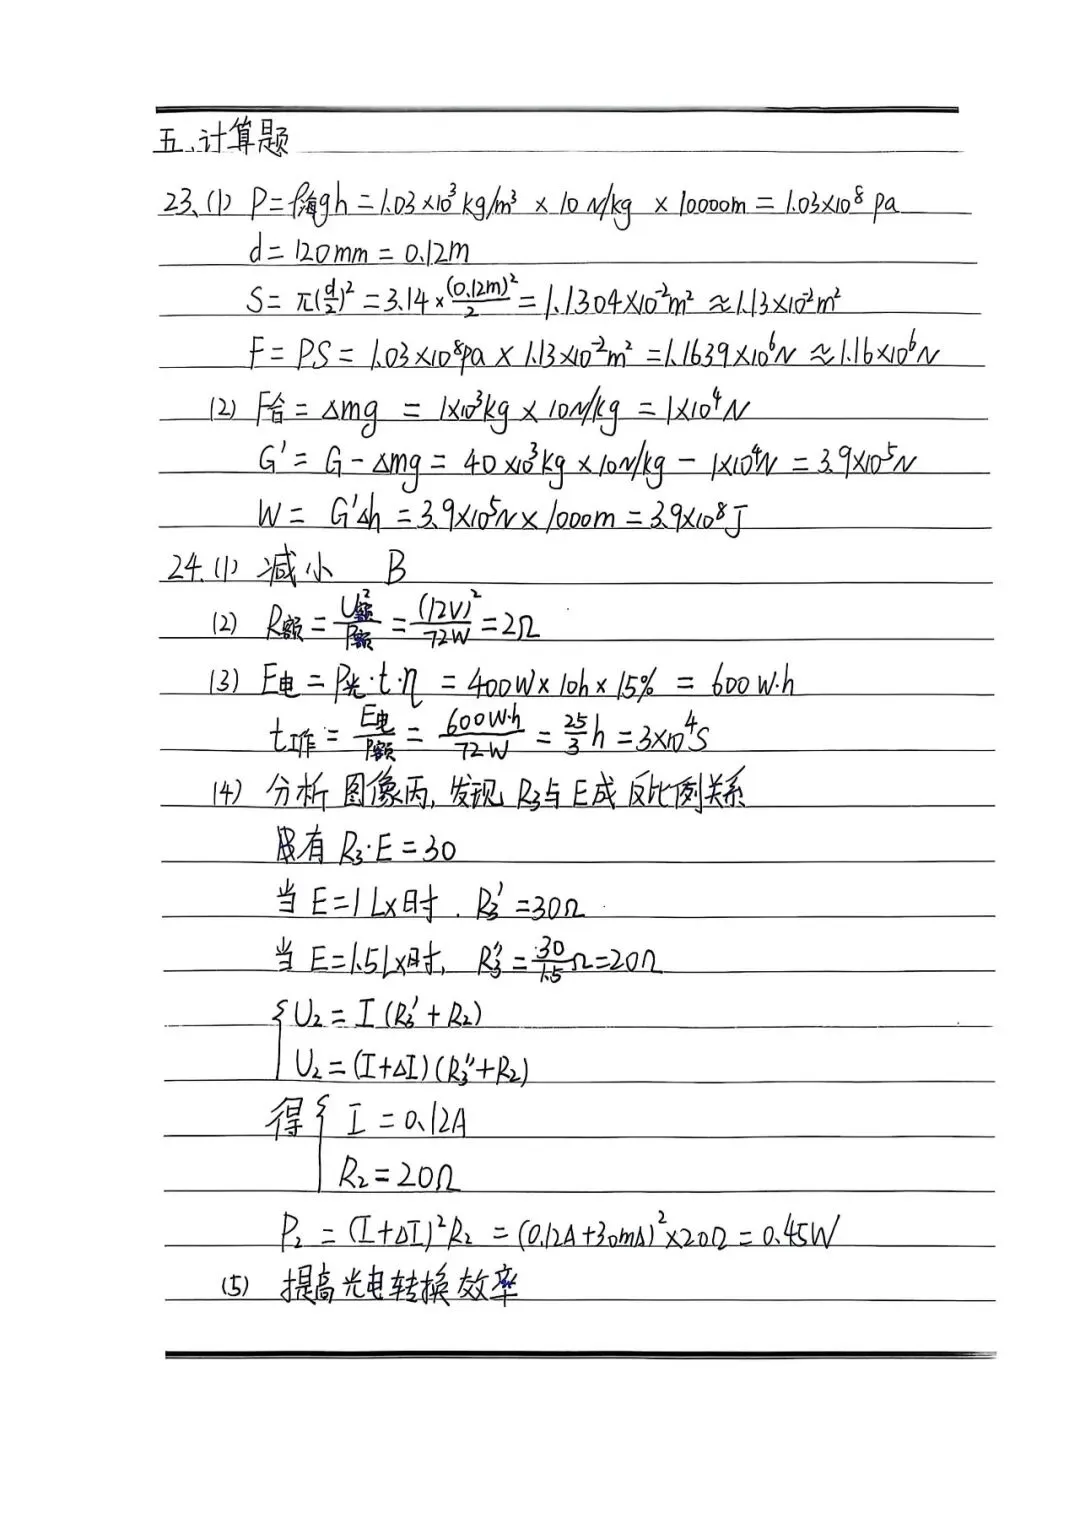 五、计算题
23、(1) P=ρ海gh=1.03×10³kg/m³ ×10N/kg ×10000m=1.03×10⁸pa
d=120mm=0.12m
S=π(d/2)²=3.14×(0.12m)²/2=1.1304×10⁻²m²≈1.13×10⁻²m²
F=PS=1.03×10⁸pa×1.13×10⁻²m²=1.1639×10⁶N≈1.16×10⁶N
(2) F合=Δmg=1×10³kg×10N/kg=1×10⁴N
G'=G-Δmg=40×10³kg×10N/kg-1×10⁴N=3.9×10⁵N
W=G'Δh=3.9×10⁵N×1000m=3.9×10⁸J
24.(1) 减小 B
(2) R额=U额²/P额=(12V)²/72W=2Ω
(3) E电=P光·t·η=400W×10h×15%=600W·h
t工作=E电/P额=600W·h/72W=25/3h=3×10⁴S
(4) 分析图像丙,发现R₃与E成反比例关系
有R₃·E=30
当E=1Lx时.R₃'=30Ω
当E=1.5Lx时,R₃''=30/1.5Ω=20Ω
{U₂=I(R₃'+R₂)
U₂=(I+ΔI)(R₃''+R₂)
得{I=0.12A
R₂=20Ω
P₂=(I+ΔI)²R₂=(0.12A+30mA)²×20Ω=0.45W
(5) 提高光电转换效率